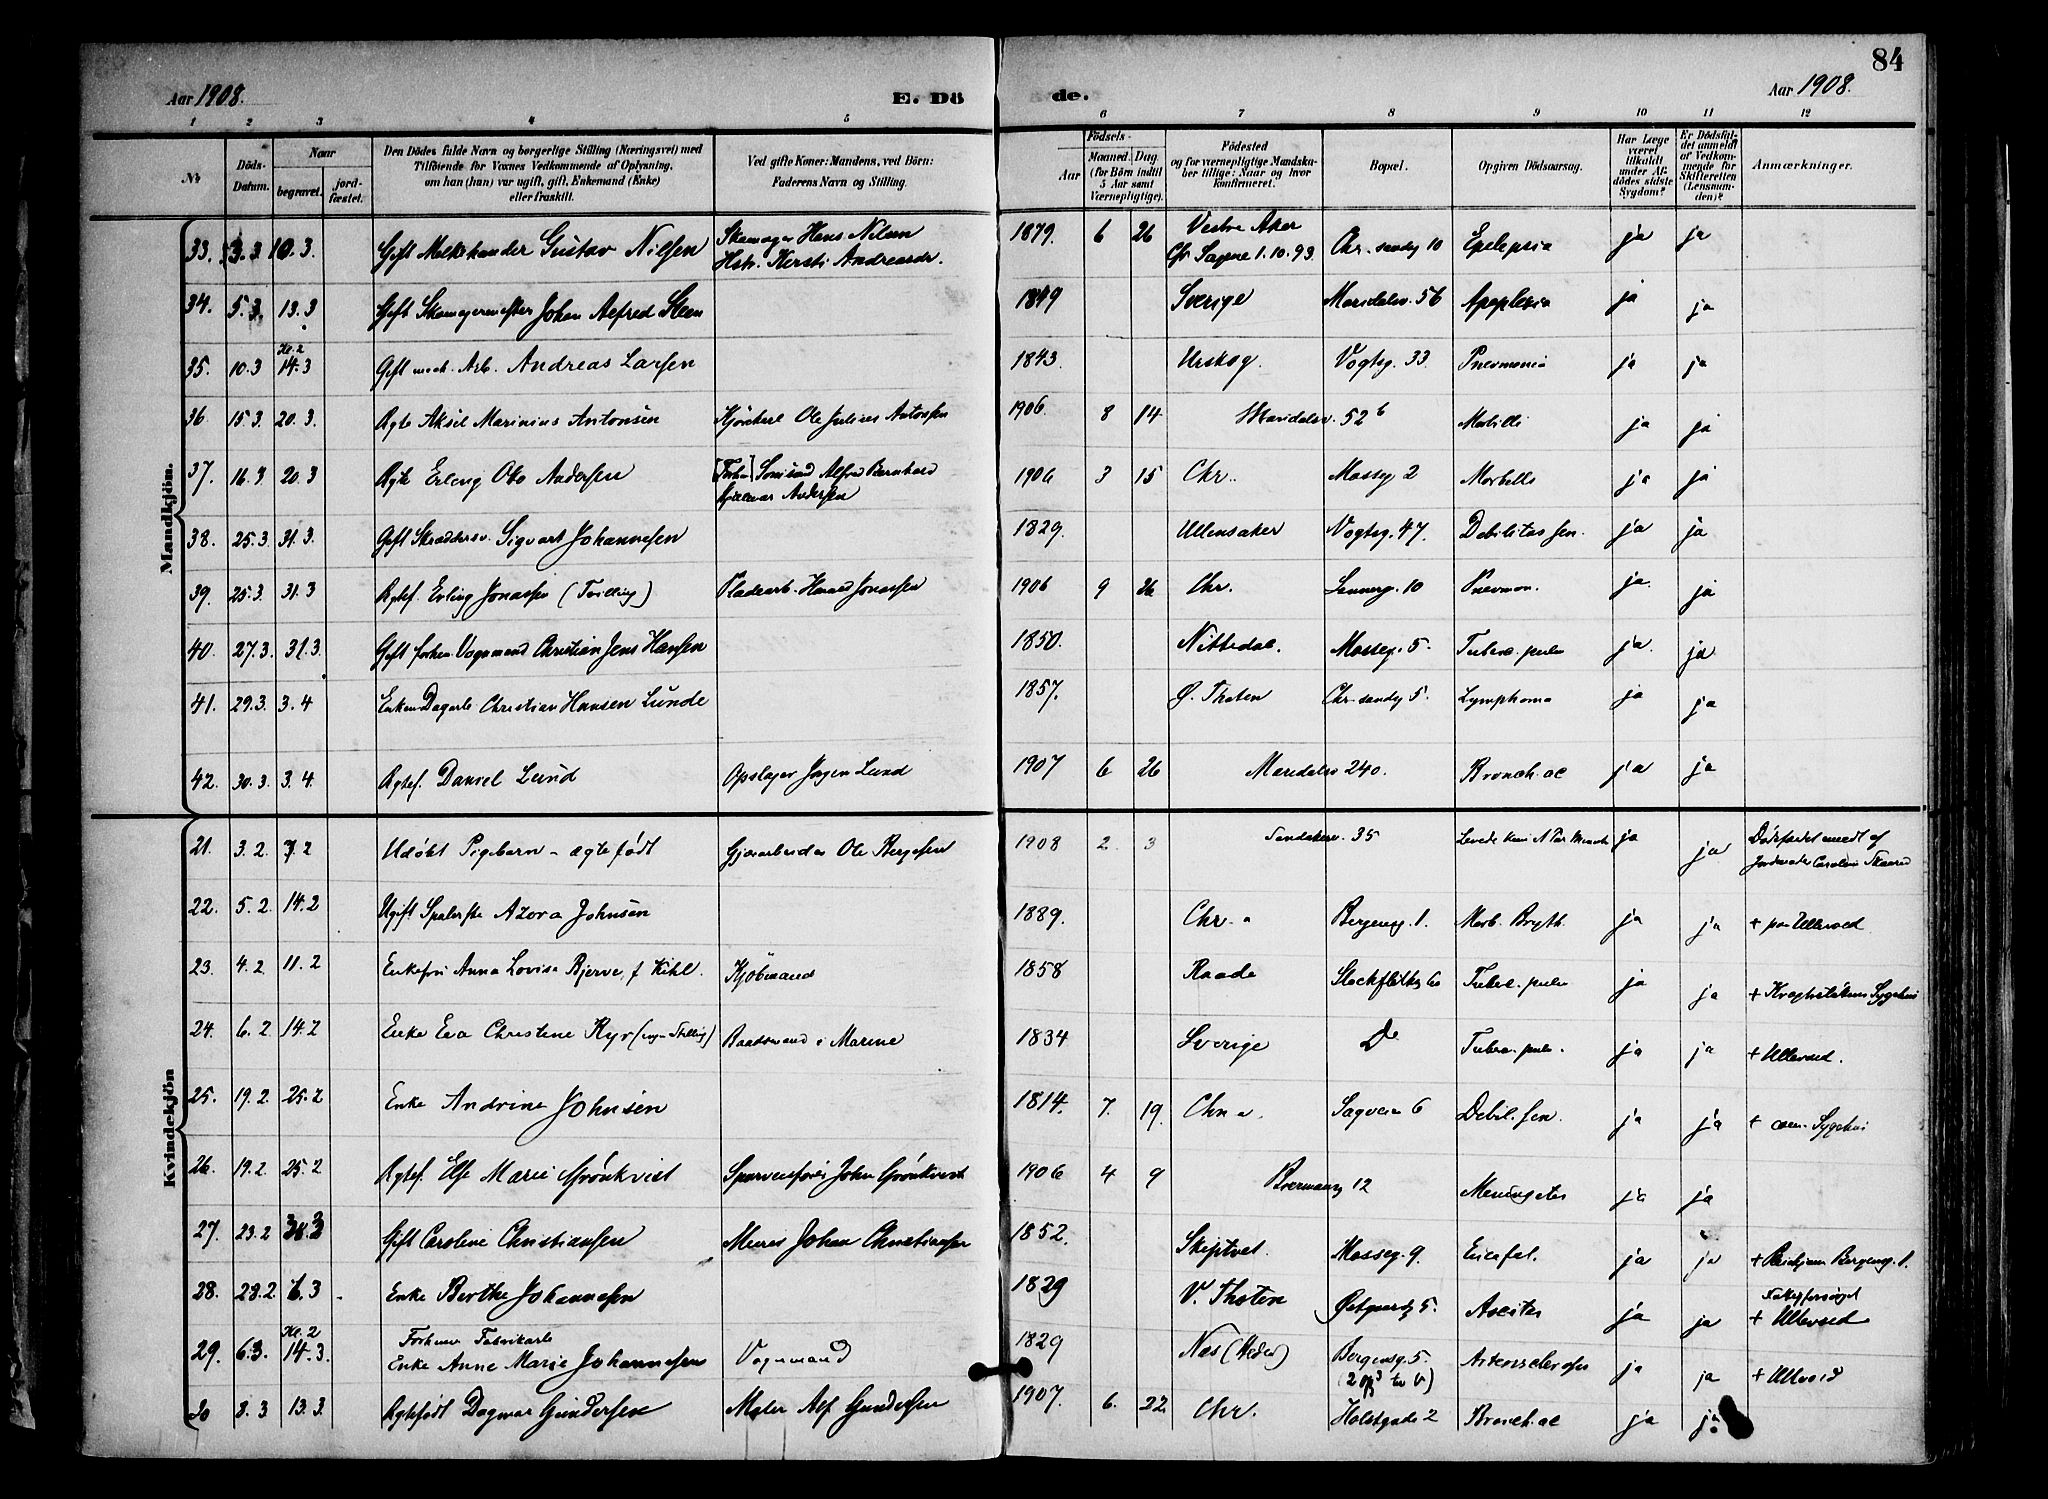 84
Aar 1908.
E. Dö
de.
Aar 1908.
1 2 3 4 5 6 7 8 9 10 11 12
Nr
Döds-Datum.
Naar
begravet.
jord-fæstet.
Den Dödes fulde Navn og borgerlige Stilling (Næringsvei) med
Tilföiende for Voxnes Vedkommende af Oplysning,
om han (hun) var ugift, gift, Enkemand (Enke)
eller fraskilt.
Ved gifte Koner: Mandens, ved Börn:
Faderens Navn og Stilling.
Födsels-
Aar
Maaned. Dag.
(for Börn indtil
5 Aar samt
Værnepligtige).
Födested
og for værnepligtige Mandska-
ber tillige: Naar og hvor
konfirmeret.
Bopæl.
Opgiven Dödsaarsag.
Har Læge
været
tilkaldt
under Af-
dödes sidste
Sygdom?
Er Dödsfal-
det anmeldt
af Vedkom-
mende for
Skifteretten
(Lensman-
den)?
Anmærkninger.
Mandkjön.
33. 3.3 10.3. Gift Melkehandler Gustav Nilsen Skomager Hans Nilsen 1879. 6 26 Vestre Aker Chr.sandg 10 Epilepsia ja ja
Hstr. Kersti Andreasdr. Chr Sagene 1.10.93.
34. 5.3. 13.3 Gift Skomagermester Johan Alfred Steen 1849 Sverige Maridalsv. 56 Apoplexia ja ja
Kl. 2
35. 10.3 14.3 Gift mek. Arb. Andreas Larsen 1843. Urskog. Vogtsg. 33. Pneumonia ja ja
36. 15.3. 20.3. Ægte Aksel Marinius Antonsen Kjörekarl Ole Julius Antonsen 1906. 8 14 Maridalsv. 52 b Morbilli ja ja
37. 16.3. 20.3 Ægte Erling Oto Andersen Sömand Alfred Bernhard 1906 3 15 Chr. Mosseg 2 Morbilli ja ja
Hjalmar Andersen
38. 25.3. 31.3. Gift Skreddersv. Sigvart Johannesen 1829. Ullensaker Vogtsg. 47. Debilitas sen. ja ja
39. 25.3. 31.3 Ægtef. Erling Jonassen (Tvilling) Pladearb. Harald Jonassen 1906 9 26 Chr. Sannerg. 10 Pneumon. ja ja
40. 27.3. 31.3. Gift forhen. Vognmand Christian Jens Hansen 1850. Nittedal. Mosseg. 5. Tuberc. pulm ja ja
41. 29.3. 3.4 Enkem. Dagarb. Christian Hansen Lunde 1857. Ø. Thoten Chr.sandg 5. Lymphoma ja ja
42. 30.3. 3.4. Ægtef. Daniel Lund Opslager Jörgen Lund 1907 6 26 Maridalsv 240. Bronch. ac ja ja
Kvindekjön
21. 3.2. 7.2 Udöbt Pigebarn - ægte födt Gjörarbeider Ole Bergesen 1908 2. 3 Sandakerv. 35 Levede kun et Par Minuter ja ja Dödsfaldet anmeldt af
Jordmoder Caroline Skaarud
22. 5.2. 14.2 Ugift Spolerske Azora Johnsen 1889. Chr.a Bergensg. 1. Morb. Bryth. ja ja + paa Ullevold
23. 4.2. 11.2 Enkefru Anna Lovise Bjerve, f. Kihl. Kjöbmand 1858 Raade Stockfleths g 6a Tuberc. pulm ja ja + Kroghstöttens Sygehus
24. 6.2 14.2 Enke Eva Christine Ryr (ingen Stilling) Baadsmand i Marine 1834 Sverige Do Tuberc. pulm. ja ja + Ullevold.
25. 19.2. 25.2 Enke Andrine Johnsen 1814. 7. 19. Chr.a. Sagveien 6 Debil. sen. ja ja + com. Sygehus
26. 19.2. 25.2 Ægtef. Else Marie Grönkvist Sporveisförer John Grönkvist 1906 4 9 Biermannsg 12 Meningitis ja ja
27. 23.2 Gift Caroline Christiansen Murer Johan Christiansen 1852. Skiptvet. Mosseg. 9. ja ja + Bergensg. 1.
28. 28.2. 6.3 Enke Berthe Johannesen 1829 V. Thoten Östgaardsg 5. Ascites ja ja + Ullevold
Kl. 2 Forhenv. Fabrikarb.
29. 6.3. 14.3. Enke Anne Marie Johannesen Vognmand 1829 Nes (Hedm) Bergensg. 5. Arteriosclerosis ja ja + Ullevold
30 8.3 13.3. Ægtefödt Dagmar Gundersen Maler Alf Gundersen 1907. 6. 22 Chr. Holstgade 2 Bronch. ac ja ja